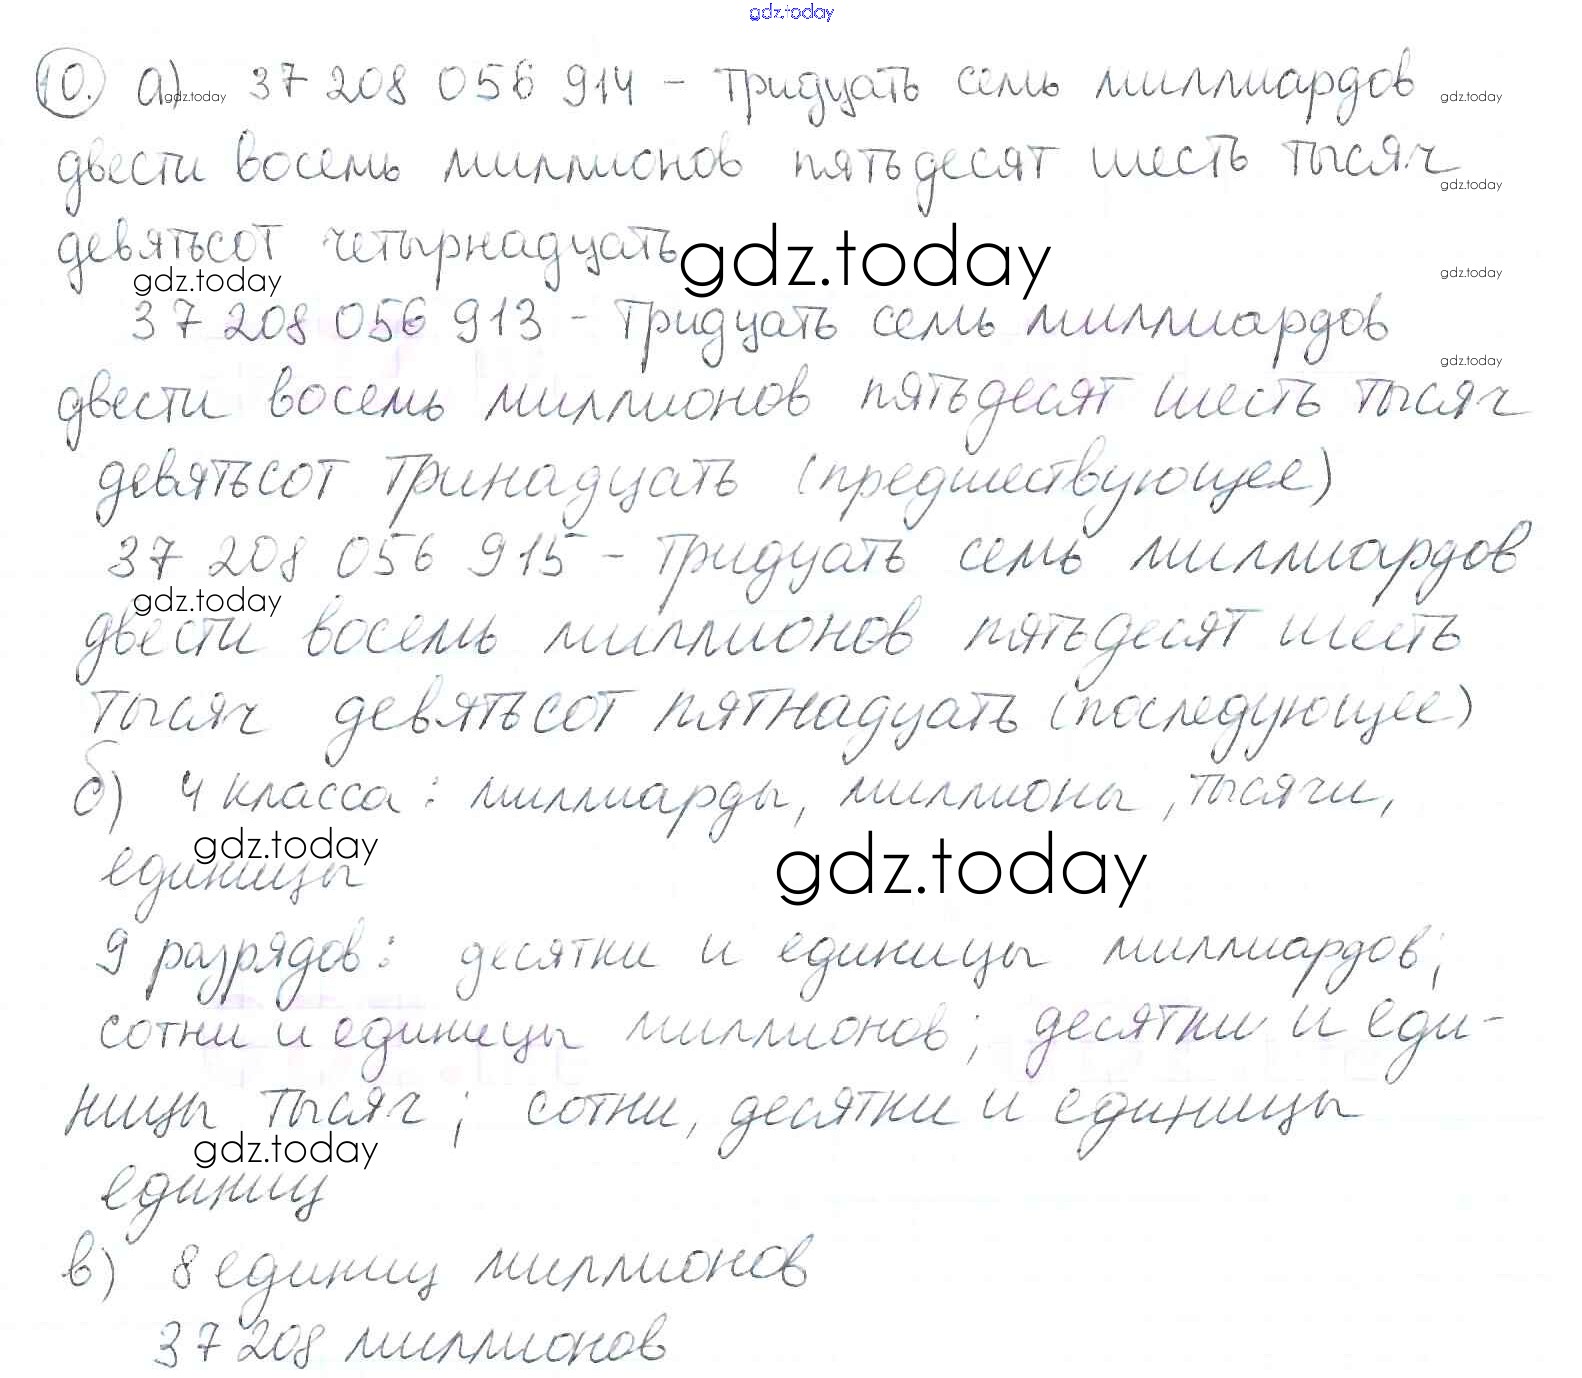 gdz.today
10. а) 37 208 056 914 – тридцать семь миллиардов
gdz.today
gdz.today
двести восемь миллионов пятьдесят шесть тысяч
gdz.today
девятьсот четырнадцать
gdz.today
gdz.today
gdz.today
37 208 056 913 – тридцать семь миллиардов
gdz.today
двести восемь миллионов пятьдесят шесть тысяч
девятьсот тринадцать (предшествующее)
37 208 056 915 – тридцать семь миллиардов
gdz.today
двести восемь миллионов пятьдесят шесть
тысяч девятьсот пятнадцать (последующее)
б) 4 класса: миллиарды, миллионы, тысячи,
gdz.today
gdz.today
единицы
9 разрядов: десятки и единицы миллиардов;
сотни и единицы миллионов; десятки и еди-
ницы тысяч; сотни, десятки и единицы
gdz.today
единиц
в) 8 единиц миллионов
37 208 миллионов